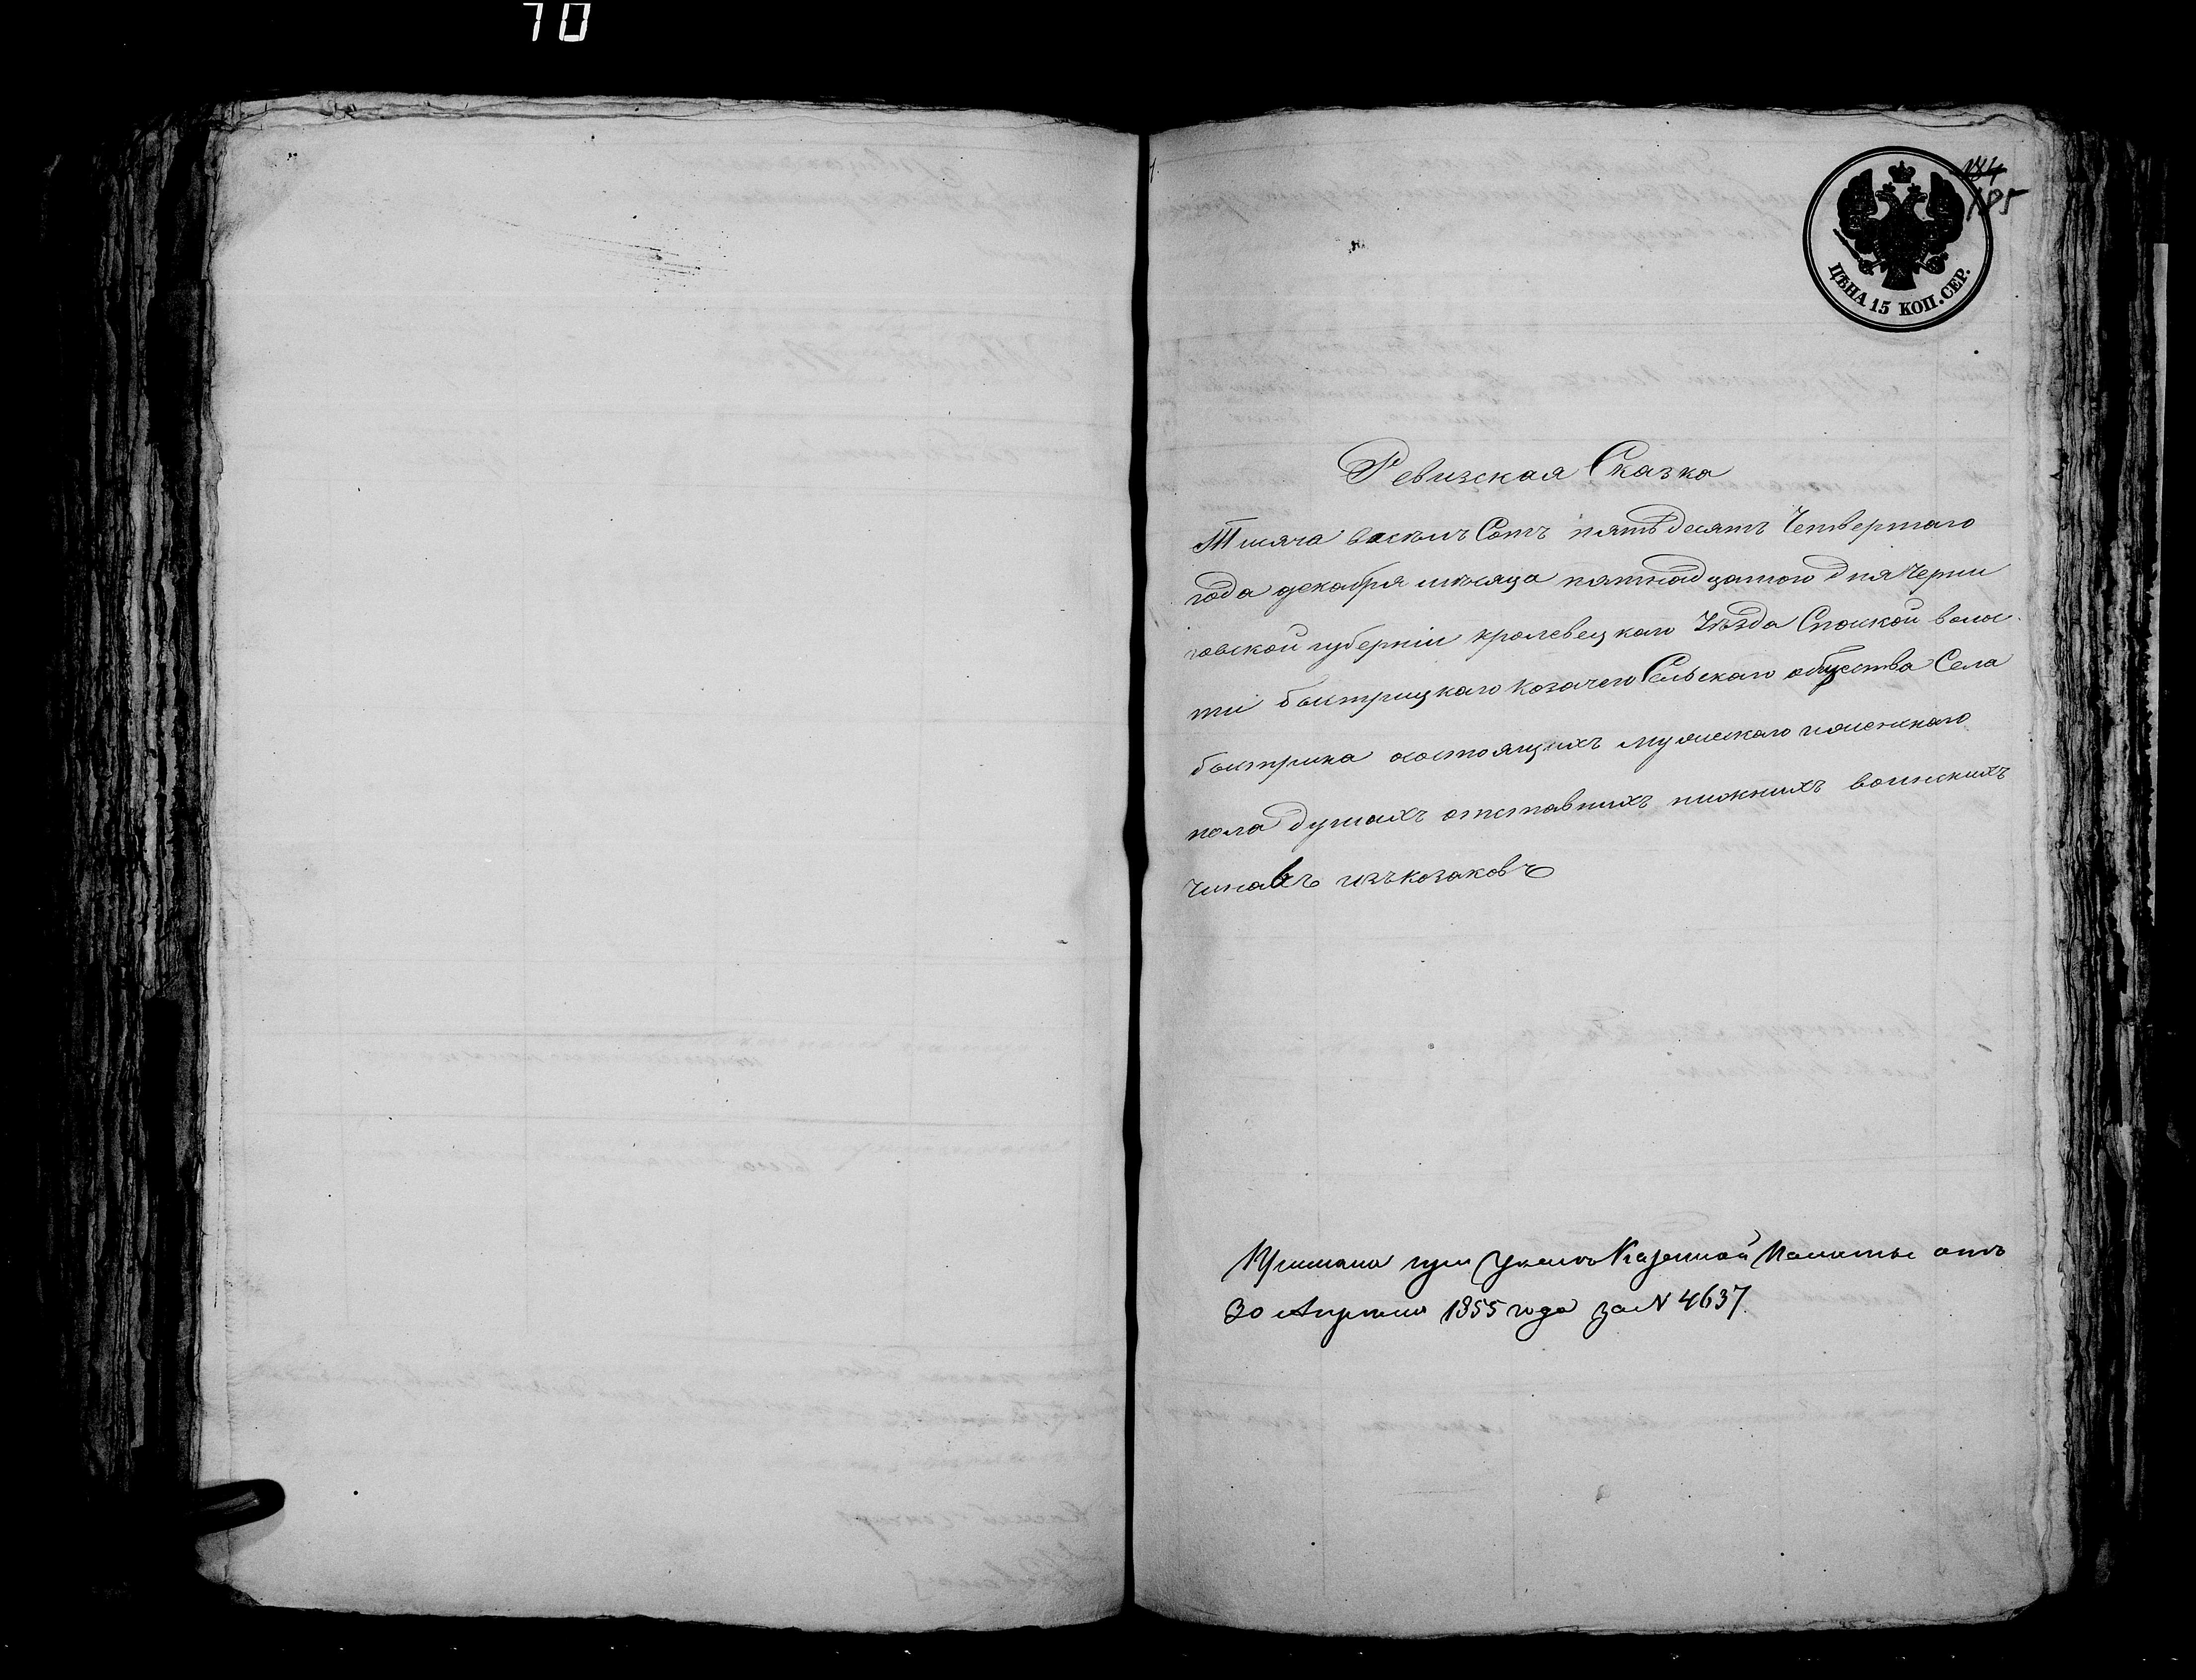 70
184
185
ЦѢНА 15 КОП. СЕР.
Ревизская Сказка
Тисяча восемъ Сотъ пятьдесятъ Четвертаго
года декабря мѣсяца пятнадцатого дня Черни
говской губерніи кролевецкаго Уѣзда Спаской волос
ти быстрицкаго козачего Сельскаго общества Села
быстрика состоящихъ мужескаго и женскаго
пола душахъ отставнихъ нижнихъ воинскихъ
Чинавъ изъ козаковъ
при Указѣ Казенной Палаты отъ
30 Апрѣля 1855 года за N 4637.